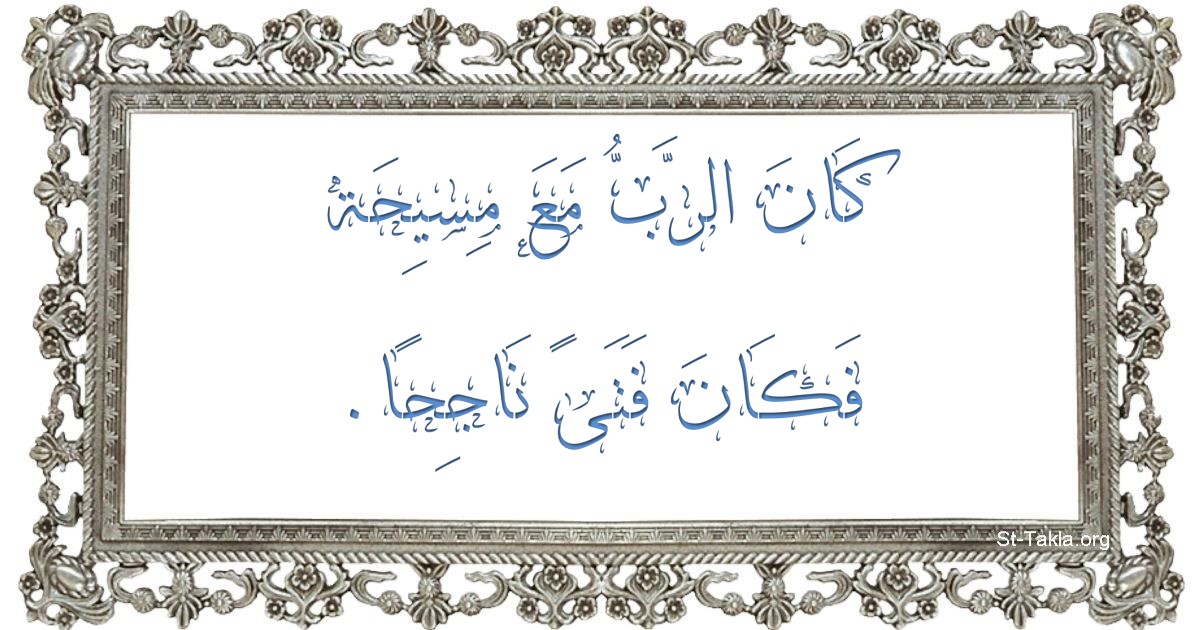 كَانَ الرَّبُّ مَعَ مِسِيحَةْ
فَكَانَ فَتَىً نَاجِحًا.
St-Takla.org